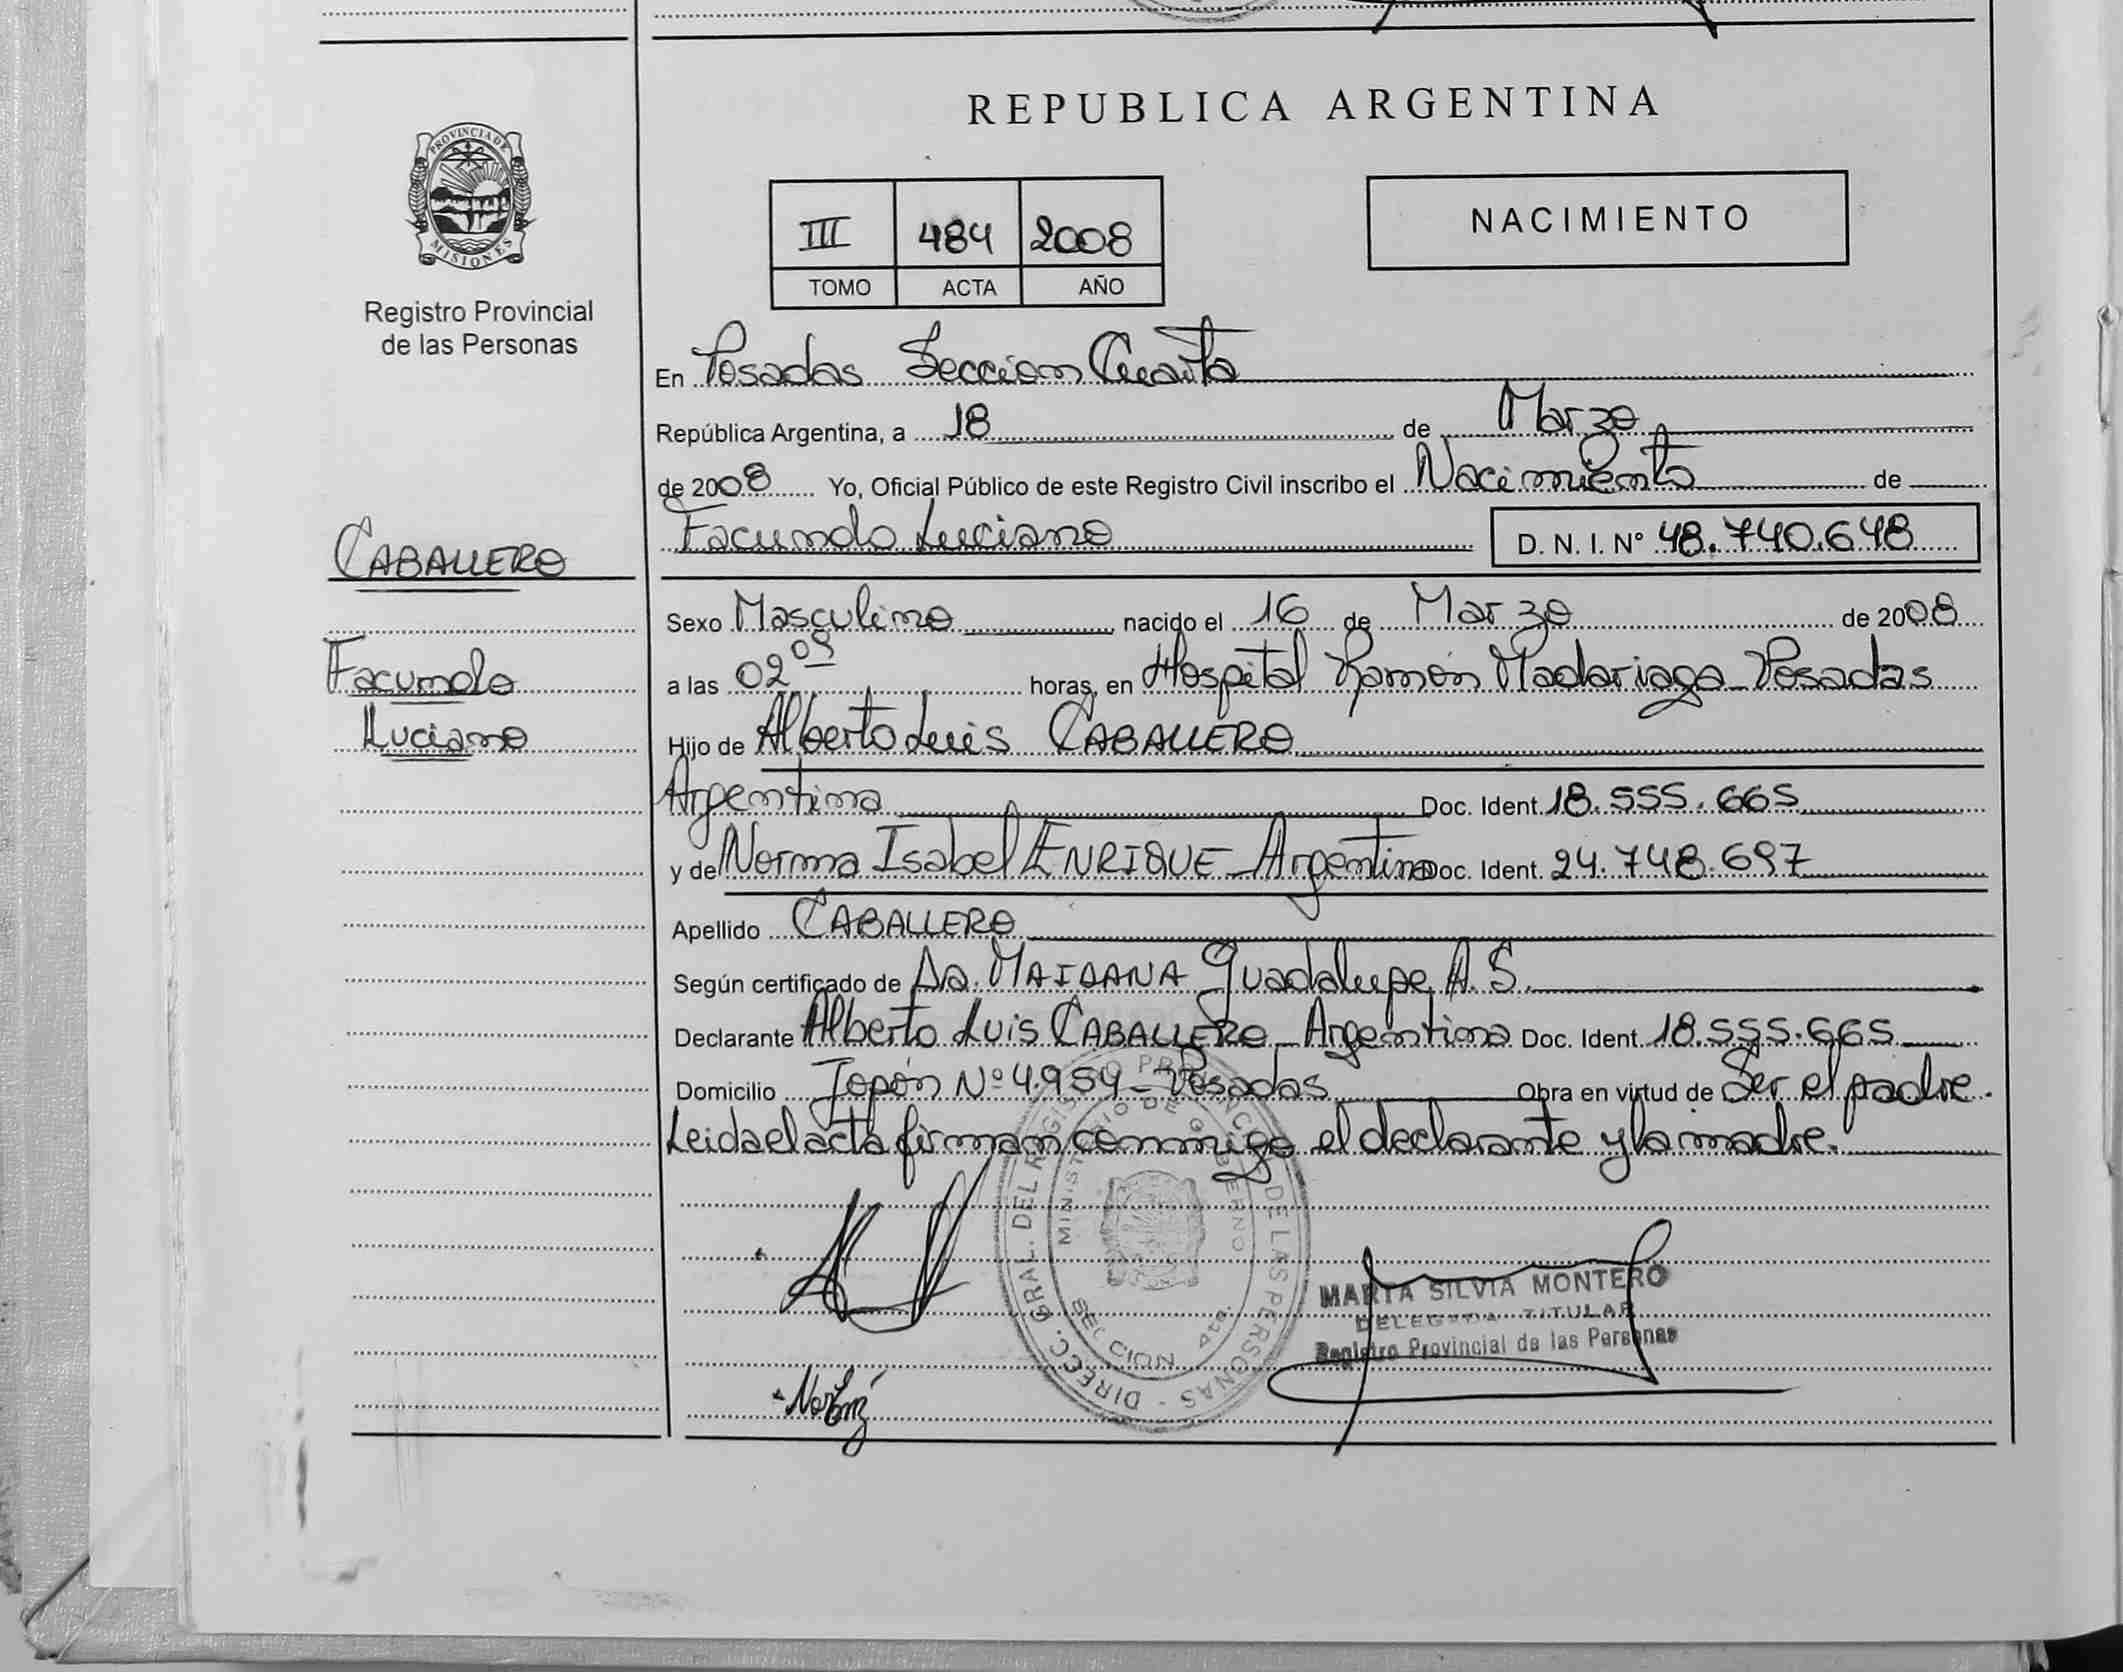 REPUBLICA ARGENTINA
PROVINCIA DE
MISIONES
Registro Provincial
de las Personas
III 484 2008
TOMO ACTA AÑO
NACIMIENTO
En Posadas Seccion Cuarta
República Argentina, a 18 de Marzo
de 2008 Yo, Oficial Público de este Registro Civil inscribo el Nacimiento de
CABALLERO
Facundo Luciano D. N. I. Nº 48.740.648
Sexo Masculino nacido el 16 de Marzo de 2008
Facundo
a las 02 05 horas, en Hospital Ramón Madariaga - Posadas
Luciano
Hijo de Alberto Luis CABALLERO
Argentina Doc. Ident. 18.555.665
y de Norma Isabel ENRIQUE - Argentina Doc. Ident. 24.748.697
Apellido CABALLERO
Según certificado de Da. MAIDANA Guadalupe A. S.
Declarante Alberto Luis CABALLERO - Argentina Doc. Ident. 18.555.665
Domicilio Japón Nº 4.954 - Posadas Obra en virtud de Ser el padre.
Leida el acta firman conmigo el declarante y la madre.
DIRECC. GRAL. DEL REGISTRO PROVINCIAL DE LAS PERSONAS
MINISTERIO DE GOBIERNO
SECCION 4ta.
MARTA SILVIA MONTERO
DELEGADA TITULAR
Registro Provincial de las Personas